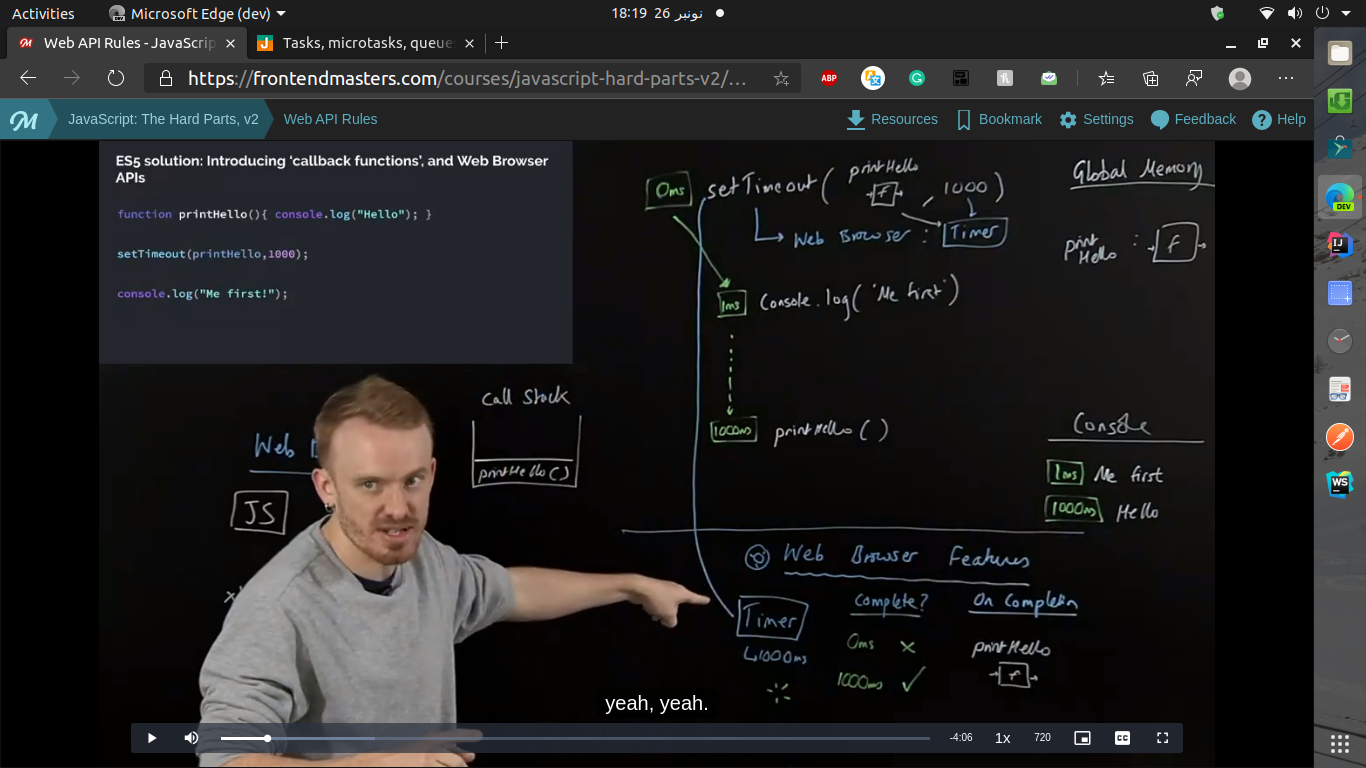 Activities
Microsoft Edge (dev)
18:19 26 نونبر
Web API Rules - JavaScrip
Tasks, microtasks, queue
https://frontendmasters.com/courses/javascript-hard-parts-v2/...
ABP
M
JavaScript: The Hard Parts, v2
Web API Rules
Resources
Bookmark
Settings
Feedback
Help
ES5 solution: Introducing 'callback functions', and Web Browser
APIs
function printHello(){ console.log("Hello"); }
setTimeout(printHello,1000);
console.log("Me first!");
0ms setTimeout( printHello f , 1000 )
Web Browser : Timer
1ms Console.log( "Me first" )
1000ms printHello ( )
Global Memory
print
Hello : f
Call Stack
printHello ( )
Web
JS
Console
1ms Me first
1000ms Hello
Web Browser Features
Timer Complete? On Completion
1000ms 0ms x printHello
1000ms ✓ f
yeah, yeah.
-4:06 1x 720 CC
DEV
IJ
WS